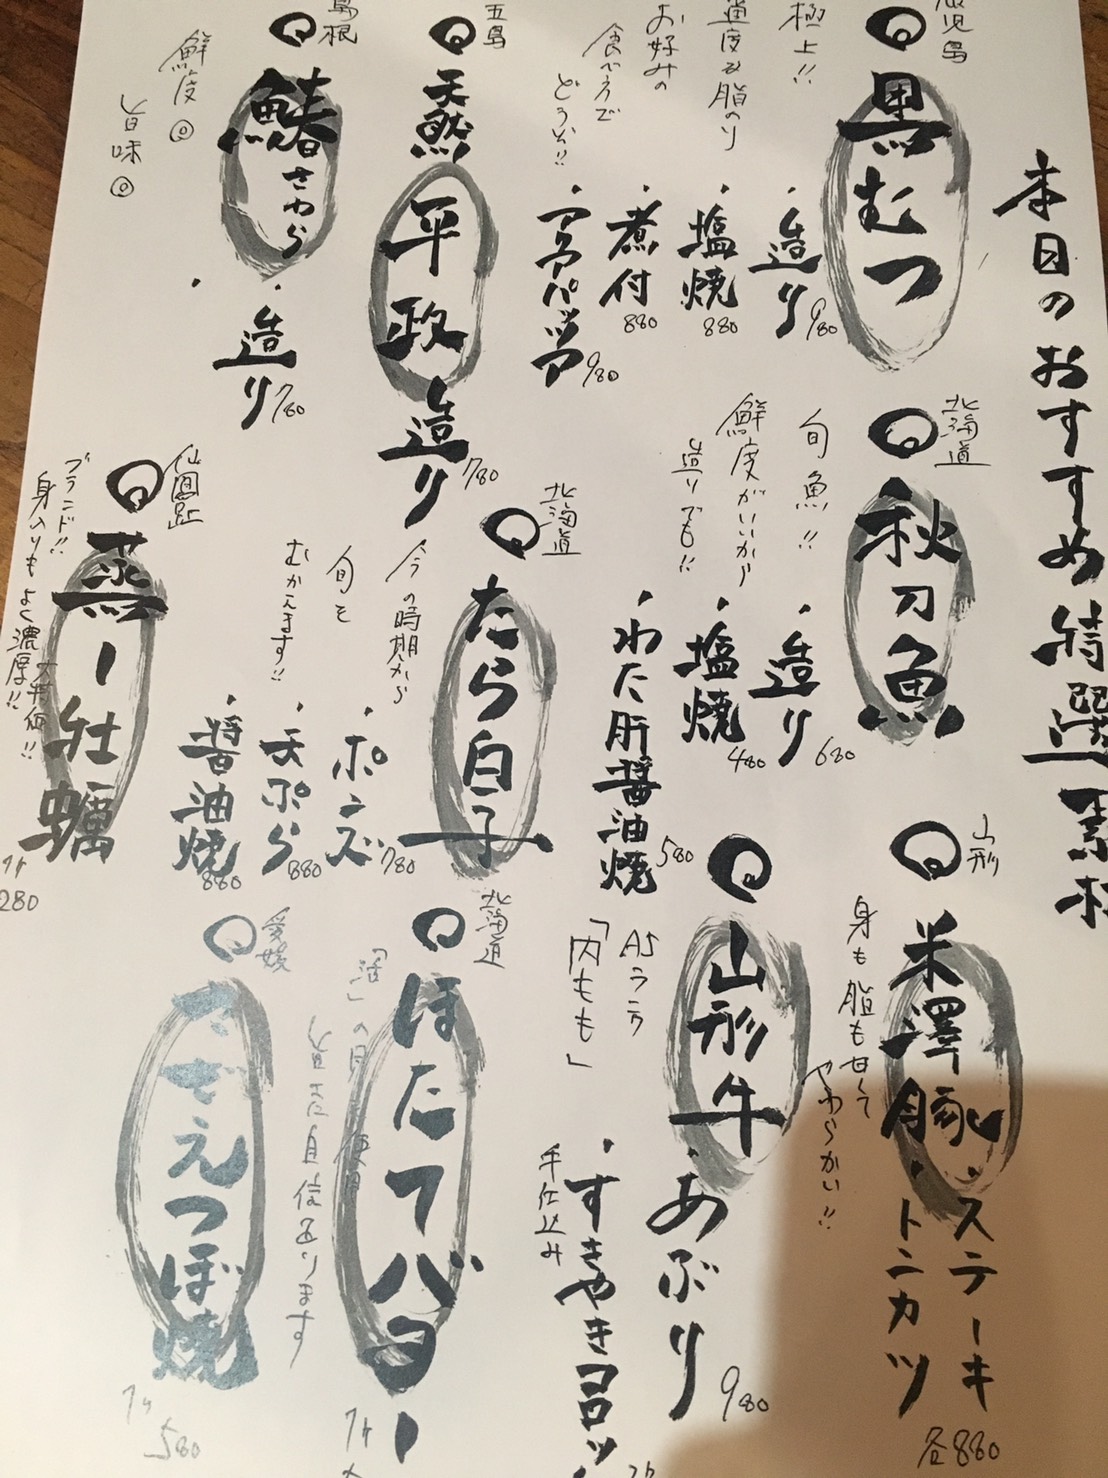 本日のおすすめ特選素材
鹿児島
黒むつ
極上!!
適度な脂のり
お好みの
食べ方で
どうぞ!!
・造り 980
・塩焼 880
・煮付 880
・アクアパッツァ 980
五島
天然
平政
造り 780
島根
鰆さわら
鮮度◎
旨味◎
・造り 780
北海道
秋刀魚
旬魚!!
鮮度がいいから
造りでも!!
・造り 680
・塩焼 480
・わた肝醤油焼 580
北海道
たら白子
今の時期から
旬を
むかえます!!
・ポンズ 780
・天ぷら 880
・醤油焼 880
仙鳳趾
蒸し牡蠣
ブランド!!
身入りもよく濃厚!!
大特価!!
1ヶ
280
山形
米澤豚
身も脂も甘くて
やわらかい!!
・ステーキ
・トンカツ
各880
山形牛
A5ランク
「内もも」
・あぶり 980
・すきやきコロッ
手仕込み
北海道
ほたてバター
「活」の貝を使用
旨さに自信あります
1ヶ
愛媛
さざえつぼ焼
1ヶ
580